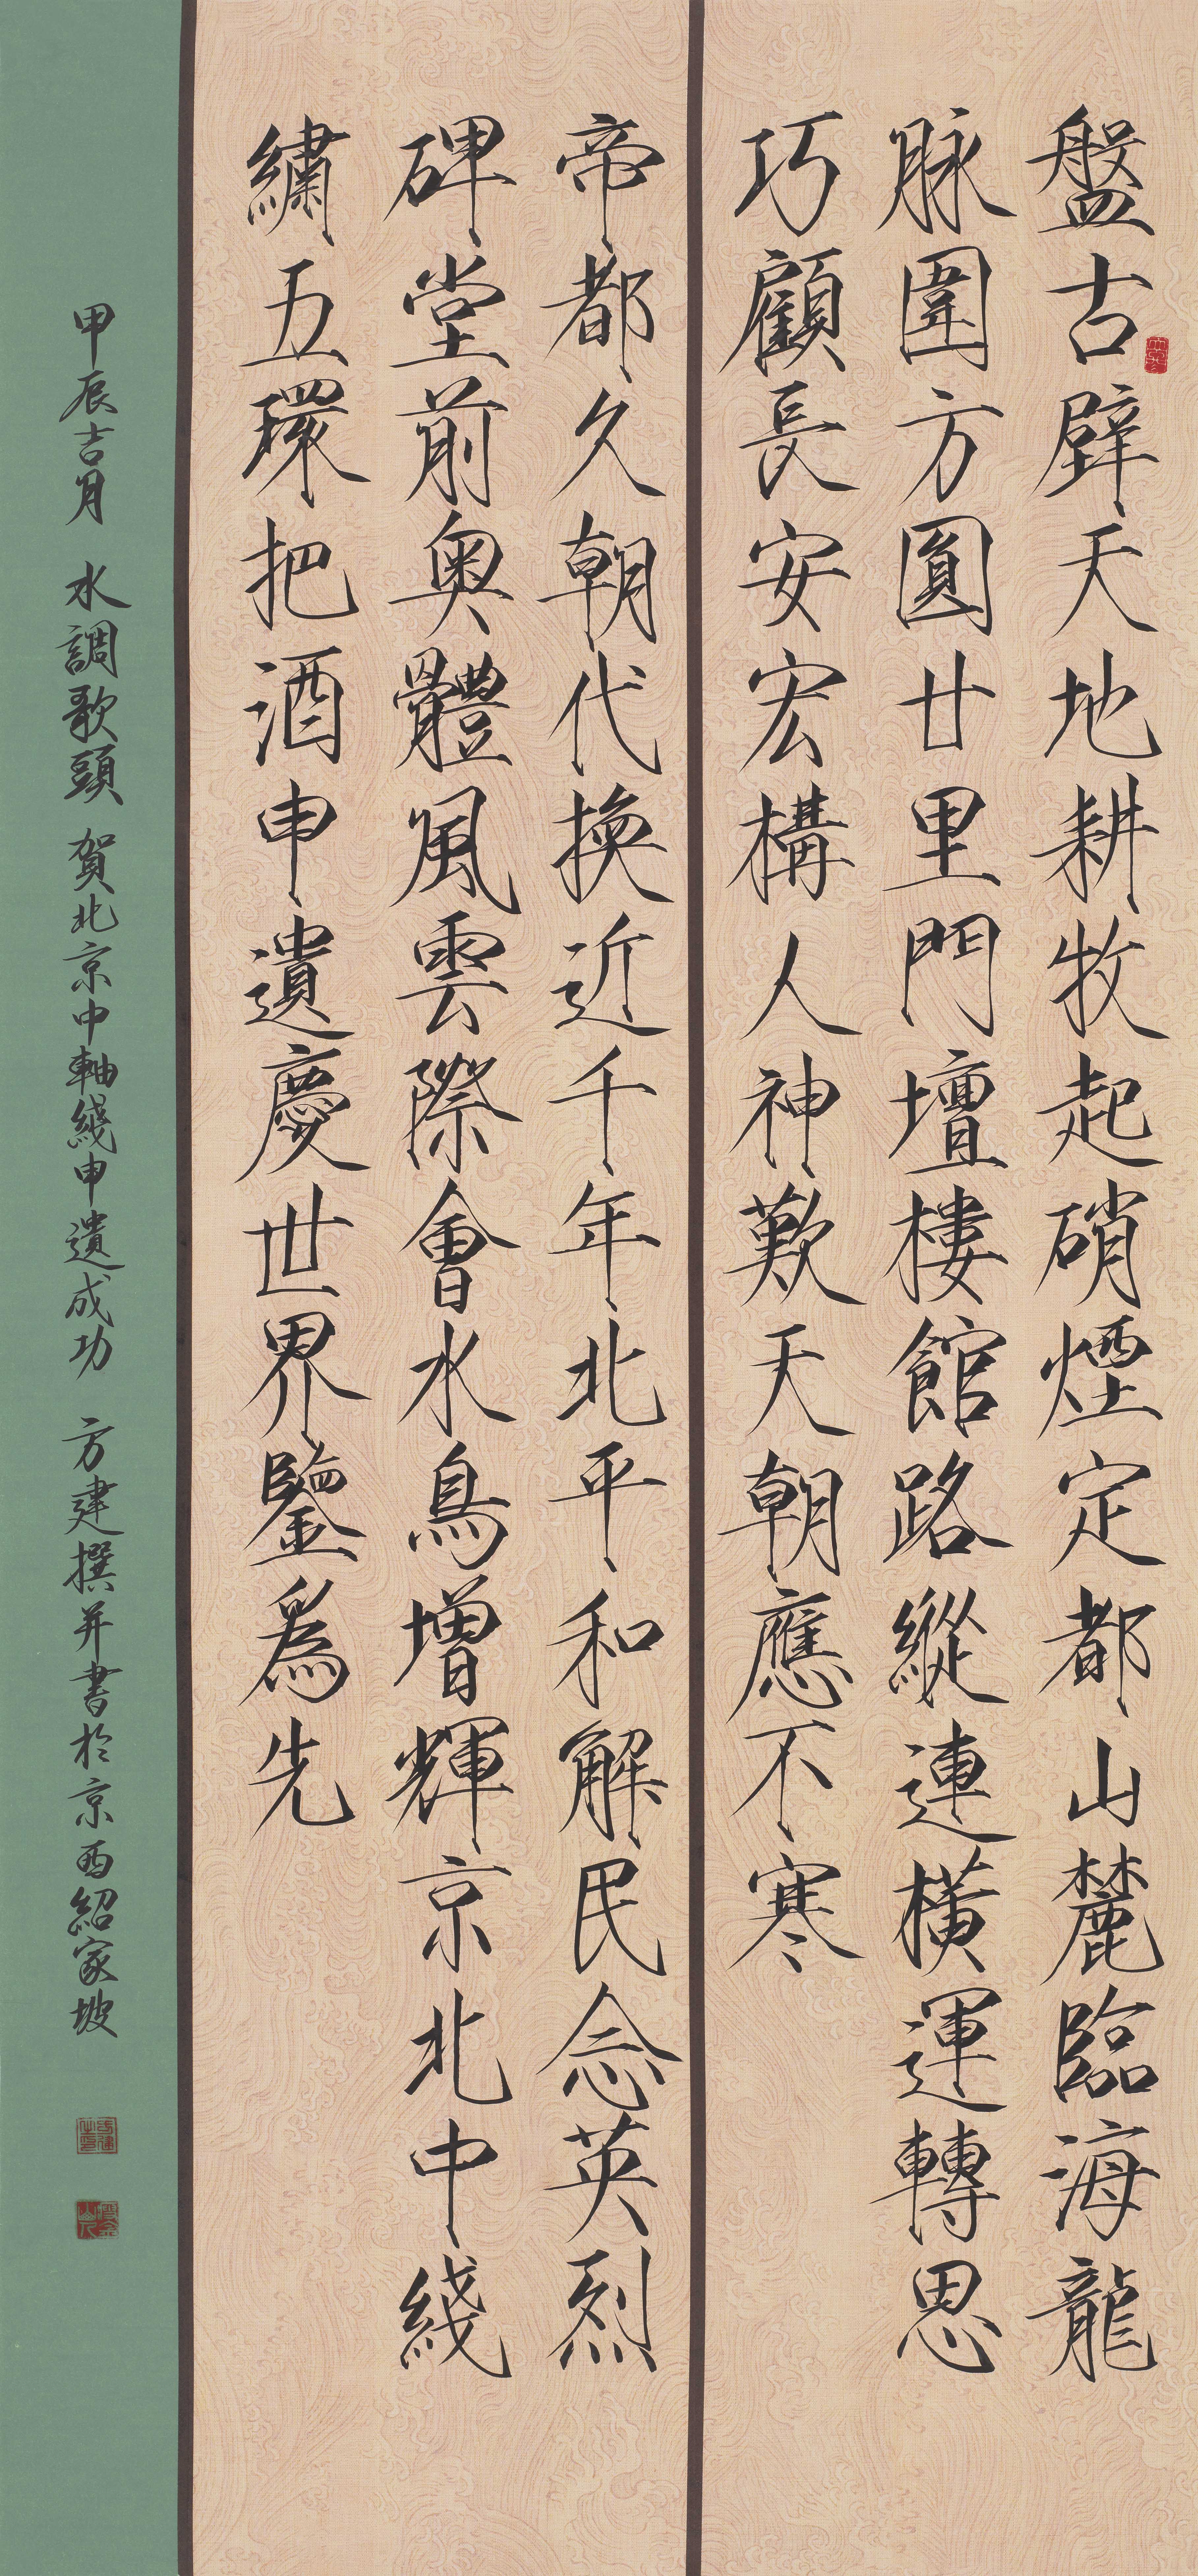 盤古壁天地耕牧起硝煙定都山麓臨海龍
脉圍方圓廿里門壇樓館路縱連橫運轉思
巧顧長安宏構人神歎天朝應不寒
帝都久朝代換近千年北平和解民念英烈
碑堂前奥體風雲際會水鳥增輝京北中綫
繡五環把酒申遺慶世界鑒爲先
甲辰吉月 水調歌頭 賀北京中軸綫申遺成功 方建撰并書於京西紹家坡